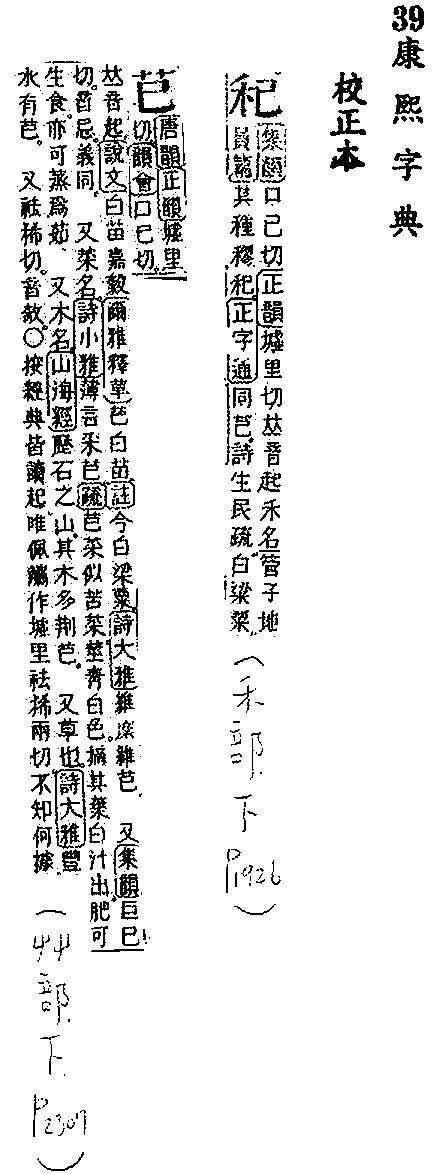 39 康熙字典
校正本
𥝧
集韻口已切正韻墟里切𠀤音起禾名管子地
員篇其種穆𥝧正字通同芑詩生民疏白粱粟
(禾部下P1926)
芑
唐韻正韻墟里
切韻會口已切
𠀤音起說文白苗嘉穀爾雅釋草芑白苗註今白粱粟詩大雅維穈維芑 又集韻巨已
切音忌義同 又菜名詩小雅薄言采芑疏芑菜似苦菜莖靑白色摘其葉白汁出肥可
生食亦可蒸爲茹 又木名山海經歷石之山其木多荆芑 又草也詩大雅豐
水有芑 又袪狶切音欷〇按經典皆讀起唯佩觿作墟里袪狶兩切不知何據
(艸部下P2307)